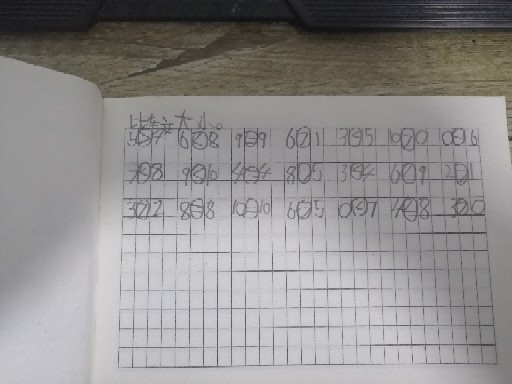 比较大小。
6<8 9=9 6>1 3<5 10>0 0<6
9<10 4=4 8>5 3<4 6<9 2>1
3>2 8=8 10=10 6>5 0<7 4<8 3>0